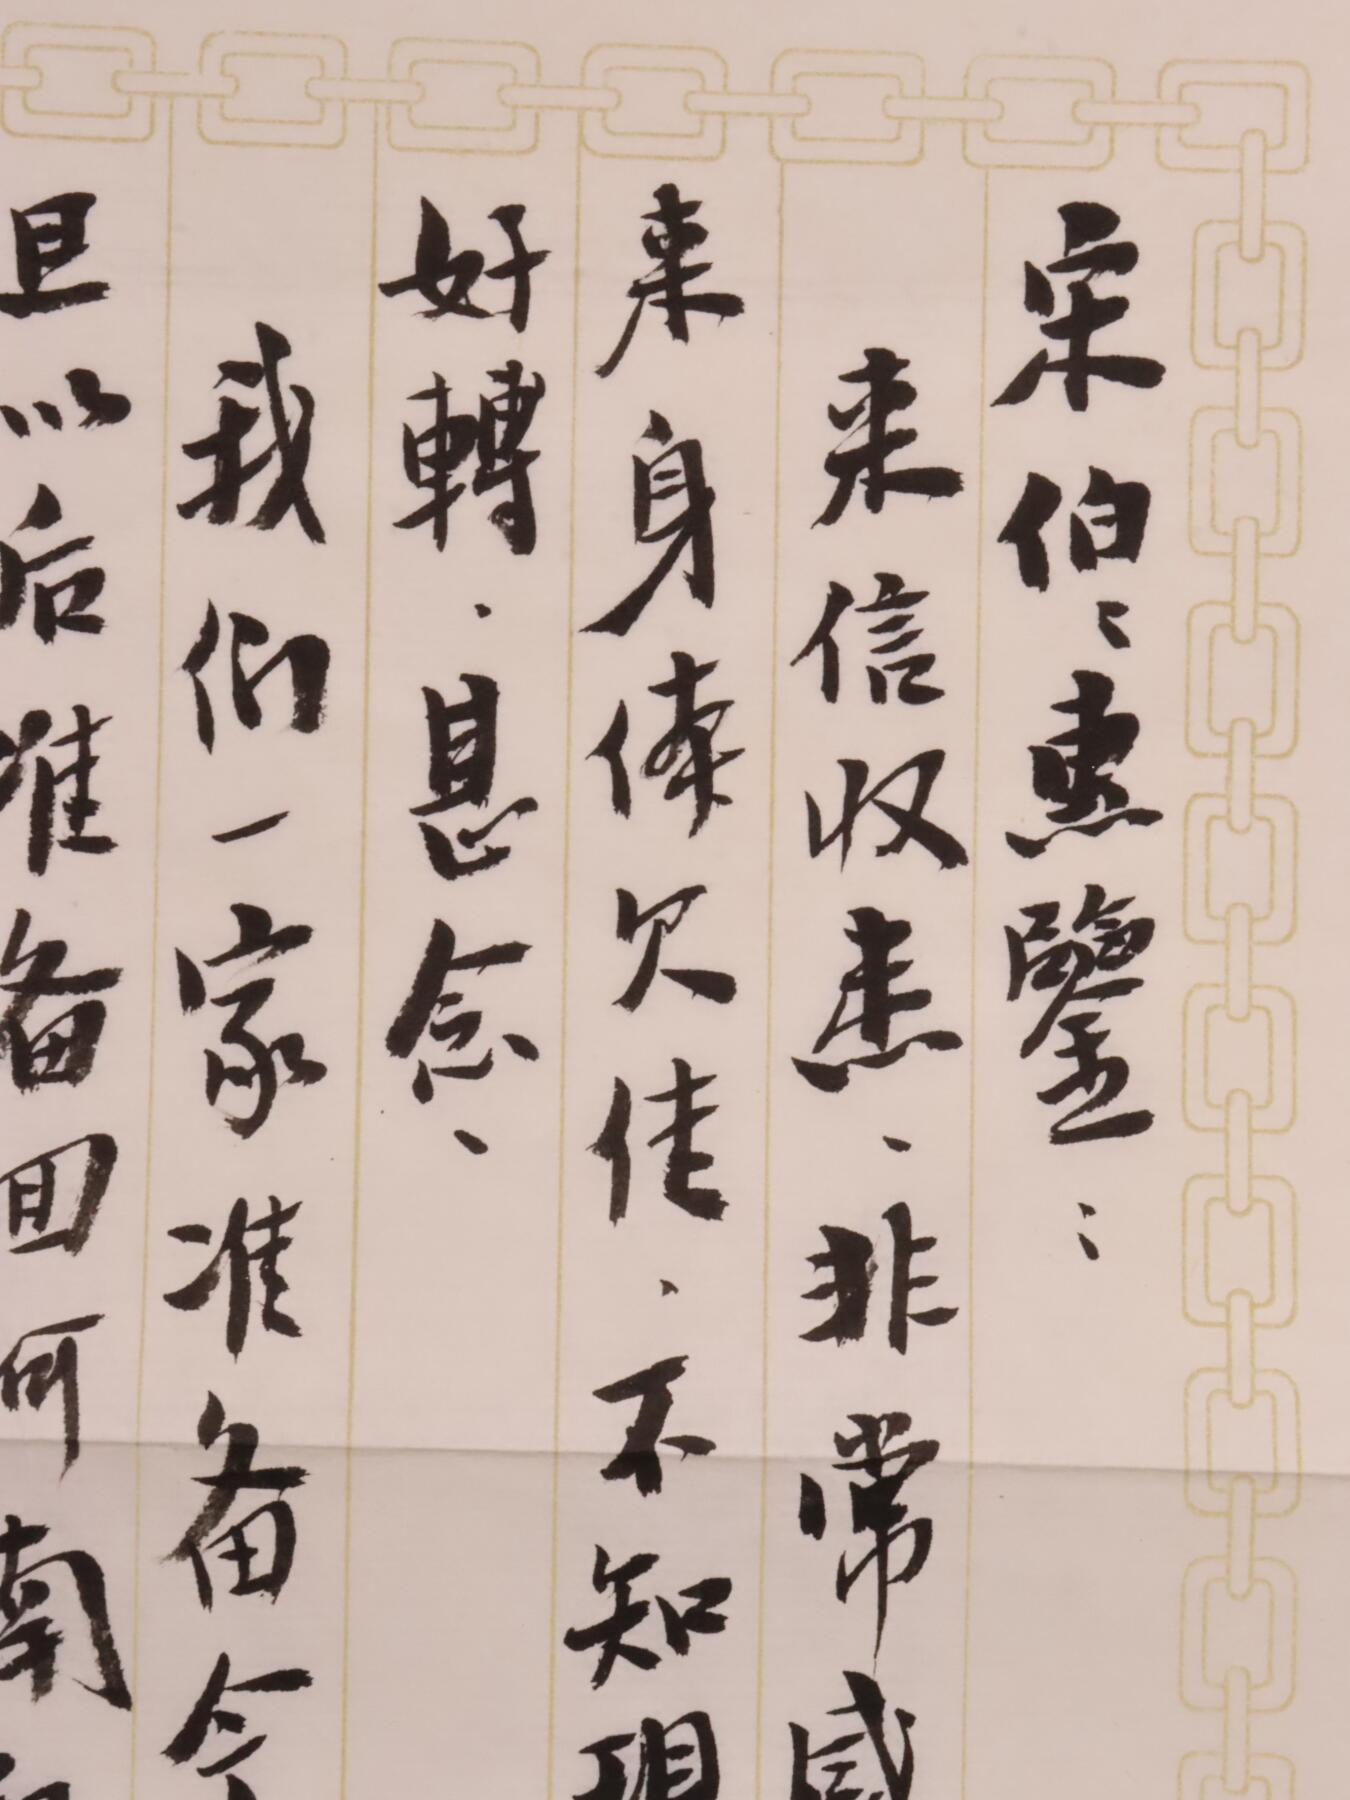 宋伯伯惠鑒：
来信收悉、非常感
来身体欠佳、不知現
好轉、甚念、
我们一家准备今
且以后准备回河南